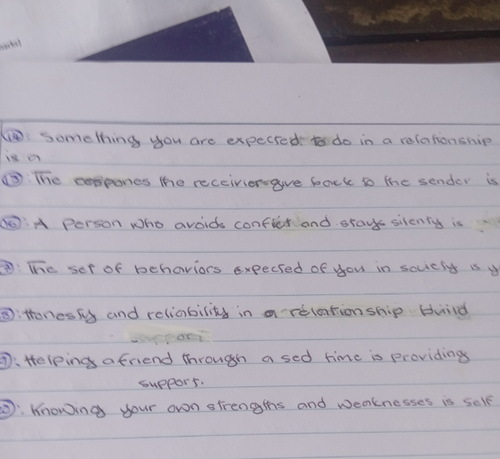 marks)
14: Something you are expected to do in a relationship
is a
15: The respones the receivier give back to the sender is
16: A person who avoids conflict and stays silently is
The set of behaviors expected of you in society is y
18: Honesty and reliability in a relationship build
: Helping a friend through a sed time is providing
support.
: Knowing your own strengths and weaknesses is self